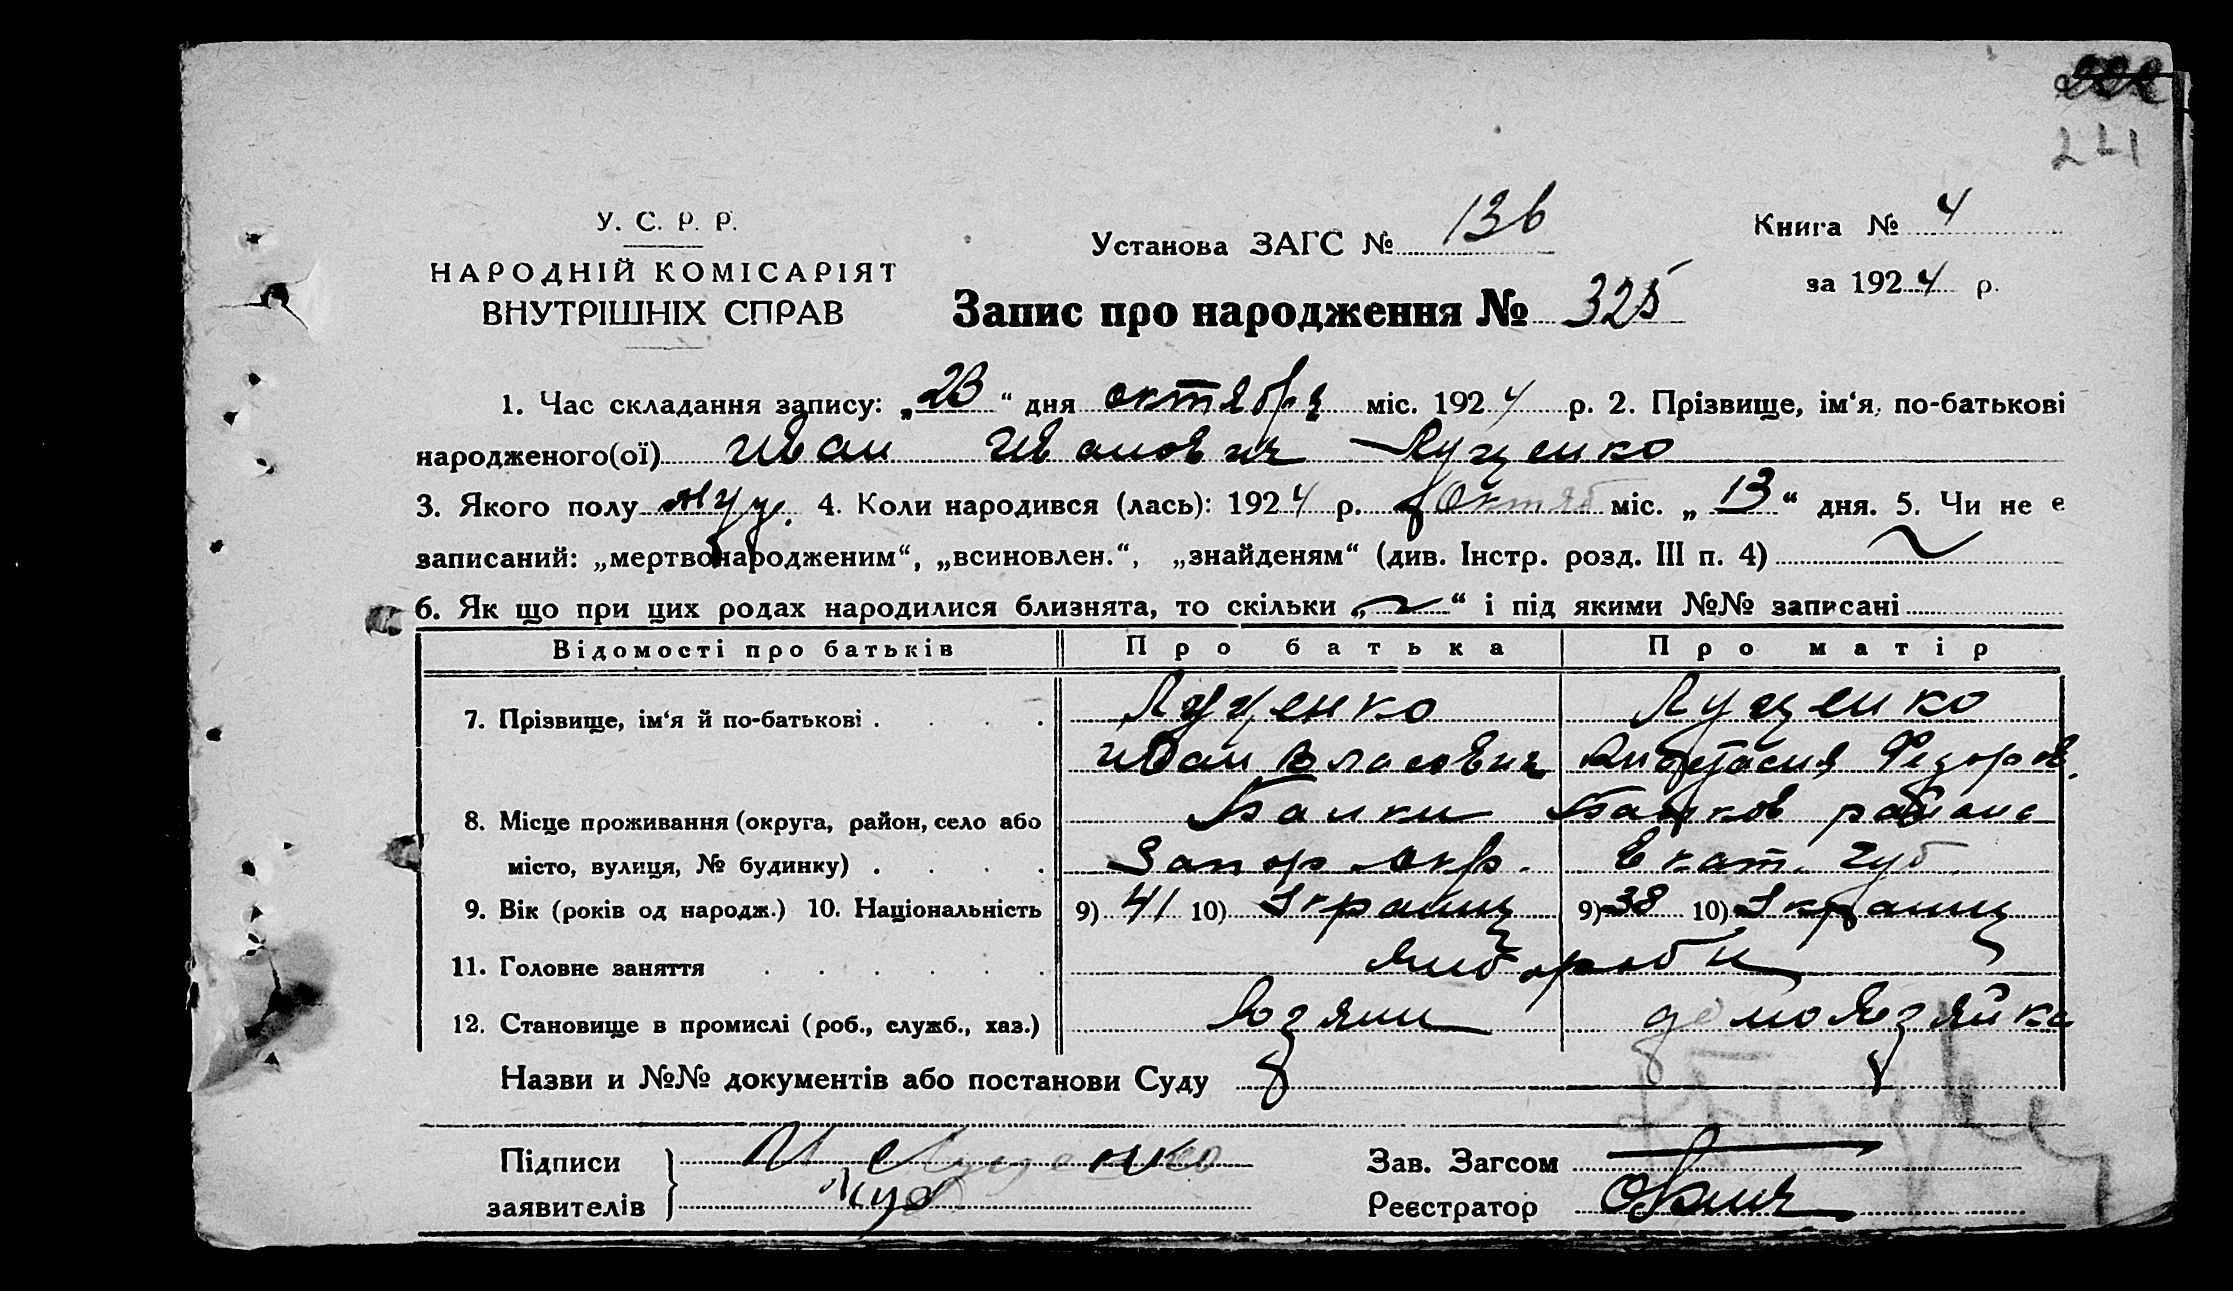 222
241
У. С. Р. Р.
НАРОДНІЙ КОМІСАРІЯТ
ВНУТРІШНІХ СПРАВ
Установа ЗАГС № 136
Книга № 4
за 1924 р.
Запис про народження № 325
1. Час складання запису: „23“ дня октября міс. 1924 р. 2. Прізвище, ім‘я, по-батькові
народженого(ої) Иван Иванович Луценко
3. Якого полу муж. 4. Коли народився (лась): 1924 р. Октяб міс. „13“ дня. 5. Чи не є
записаний: „мертвонародженим“, „всиновлен.“, „знайденям“ (див. Інстр. розд. III п. 4)
6. Як що при цих родах народилися близнята, то скільки „ “ і під якими №№ записані
Відомості про батьків Про батька Про матір
7. Прізвище, ім‘я й по-батькові . . . . Луценко Луценко
Иван Власович Анастасия Федоров.
8. Місце проживання (округа, район, село або Балки района
місто, вулиця, № будинку) . . . . Запор. окр. Екат. губ.
9. Вік (років од народж.) 10. Національність 9) 41 10) Украинц 9) 38 10) Украинц
11. Головне заняття . . . . . . хлібороби
12. Становище в промислі (роб., служб., хаз.) хозяин домохозяйка
Назви и №№ документів або постанови Суду
Підписи заявителів } И Луценко
Зав. Загсом
Реєстратор